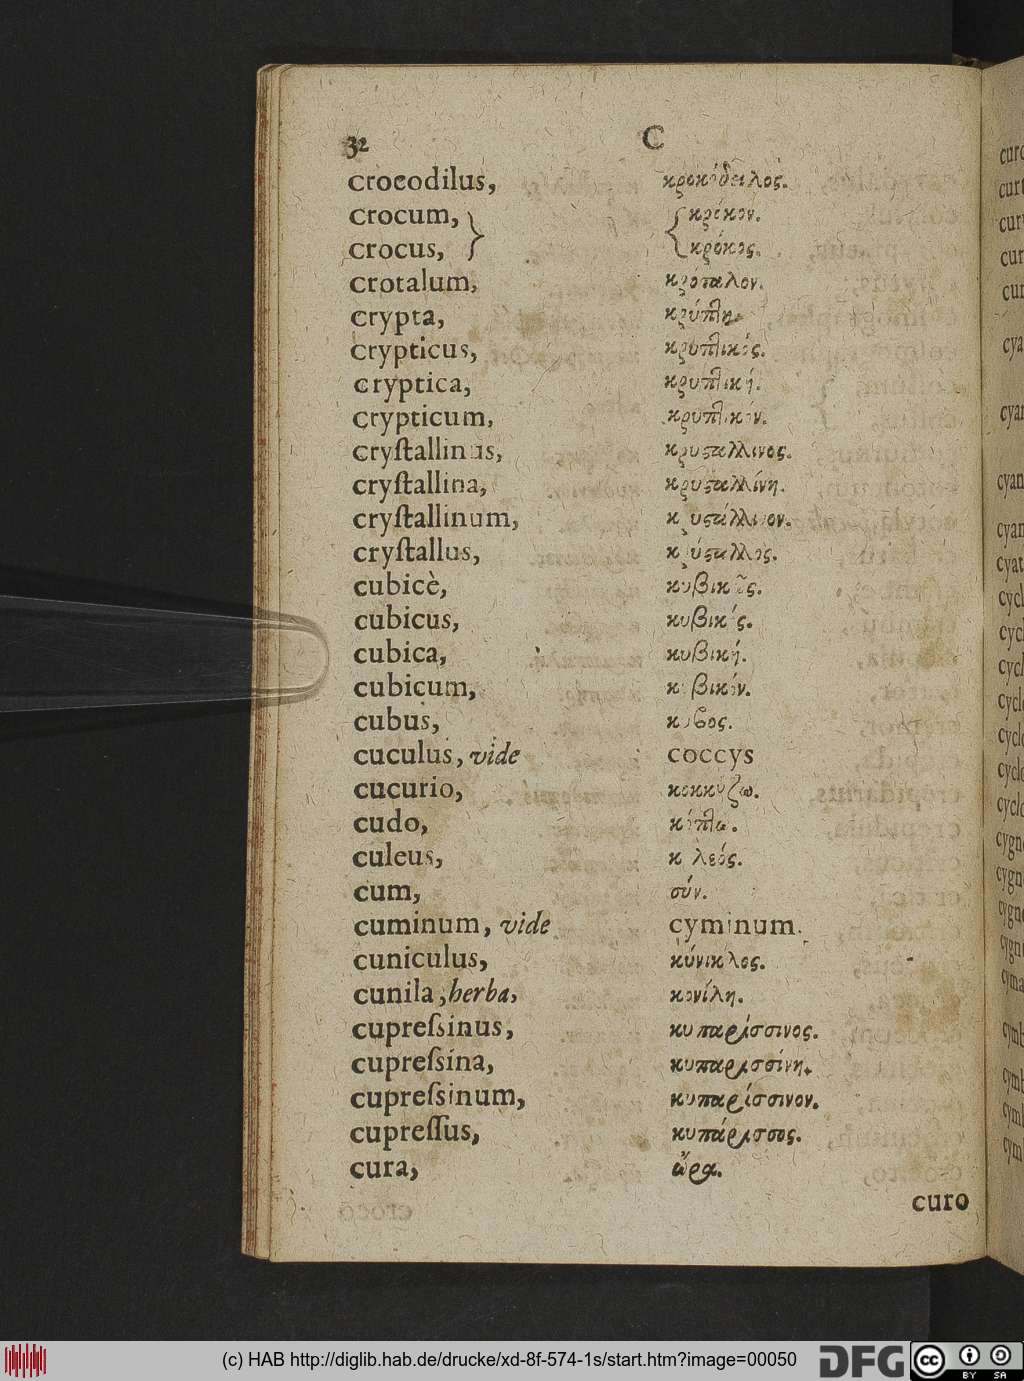 32 C
crocodilus, κροκόδειλος.
crocum, κρόκον.
crocus, κρόκος.
crotalum, κρόταλον.
crypta, κρύπτη.
crypticus, κρυπτικός.
cryptica, κρυπτική.
crypticum, κρυπτικόν.
cryſtallinus, κρυϛάλλινος.
cryſtallina, κρυϛαλλίνη.
cryſtallinum, κρυϛάλλινον.
cryſtallus, κρύϛαλλος.
cubicè, κυβικῶς.
cubicus, κυβικός.
cubica, κυβική.
cubicum, κυβικόν.
cubus, κύβος.
cuculus, vide coccys
cucurio, κοκκύζω.
cudo, κόπτω.
culeus, κολεός.
cum, σύν.
cuminum, vide cyminum.
cuniculus, κύνικλος.
cunila, herba, κονίλη.
cupreſsinus, κυπαρίσσινος.
cupreſsina, κυπαρισσίνη.
cupreſsinum, κυπαρίσσινον.
cupreſſus, κυπάρισσος.
cura, ὤρα.
curo
(c) HAB http://diglib.hab.de/drucke/xd-8f-574-1s/start.htm?image=00050
DFG
cc BY SA